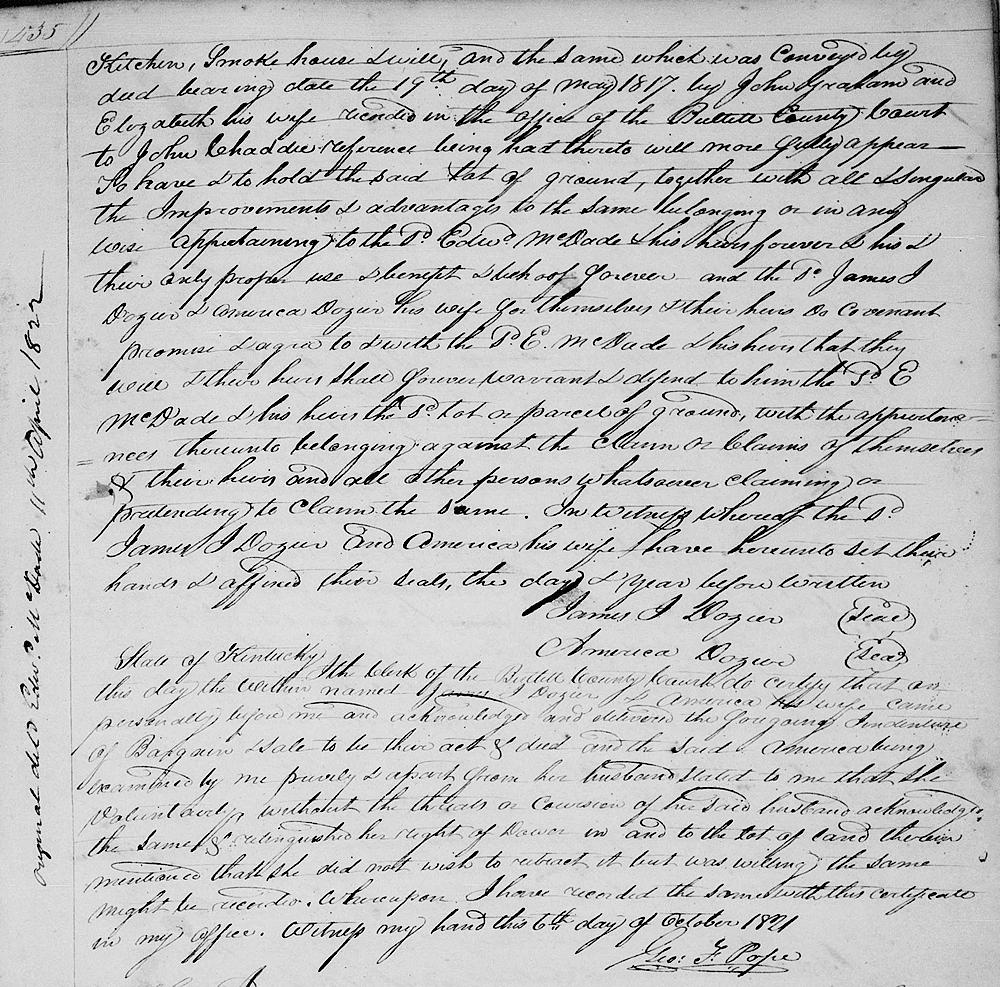 435
Kitchen, Smoke house & well, and the same which was Conveyd by
deed bearing date the 19th day of May 1817. by John Graham and
Elizabeth his wife recorded in the office of the Bullitt County Court
to John Chaddic reference being had thereto will more fully appear
To have & to hold the said Lot of ground, together with all & Singular
the Improvements & advantages to the same belonging or in any
wise appertaining to the Sd. Edwd. McDade & his heirs forever & his &
their only proper use & benefit & behoof forever and the Sd. James J
Dozier & America Dozier his wife for themselves & their heirs do Covenant
promise & agree to & with the Sd. E. McDade & his heirs that they
will & their heirs Shall forever warrant & defend to him the Sd E
McDade & his heirs the Sd Lot or parcel of ground, with the appurtena=
=nces thereunto belonging against the Claim or Claims of themselves
& their heirs and all other persons whatsoever claiming or
pretending to Claim the same. In Witness whereof the Sd.
James J Dozier and America his wife have hereunto set their
hands & affixed their seals, the day & Year before written
James J Dozier (Seal)
America Dozier (Seal)
State of Kentucky I the Clerk of the Bullitt County Court do certify that on
this day the within named James J Dozier & America his wife came
personally before me and acknowledged and delivered the foregoing Indenture
of Bargain & Sale to be their act & deed and the said America being
examined by me privily & apart from her husband stated to me that she
Voluntarily, without the threats or coersion of her said husband acknowledges
the same & relinquished her right of Dower in and to the lot of land therein
mentioned that she did not wish to retract it but was willing the same
might be recorded. Whereupon I have recorded the same with this certificate
in my office. Witness my hand this 6th day of October 1821
Geo: F. Pope
original deld Edwd. McDade 11th April 1822